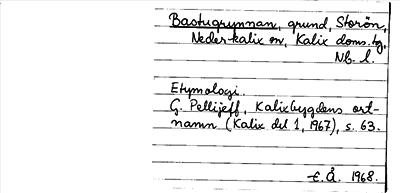 Bastugrynnan, grund, Storön,
Neder-kalix sn, Kalix doms. tg,
Nb. l.
Etymologi.
G. Pellijeff, Kalixbygdens ort-
namn (Kalix del 1, 1967), s. 63.
E. Å. 1968.